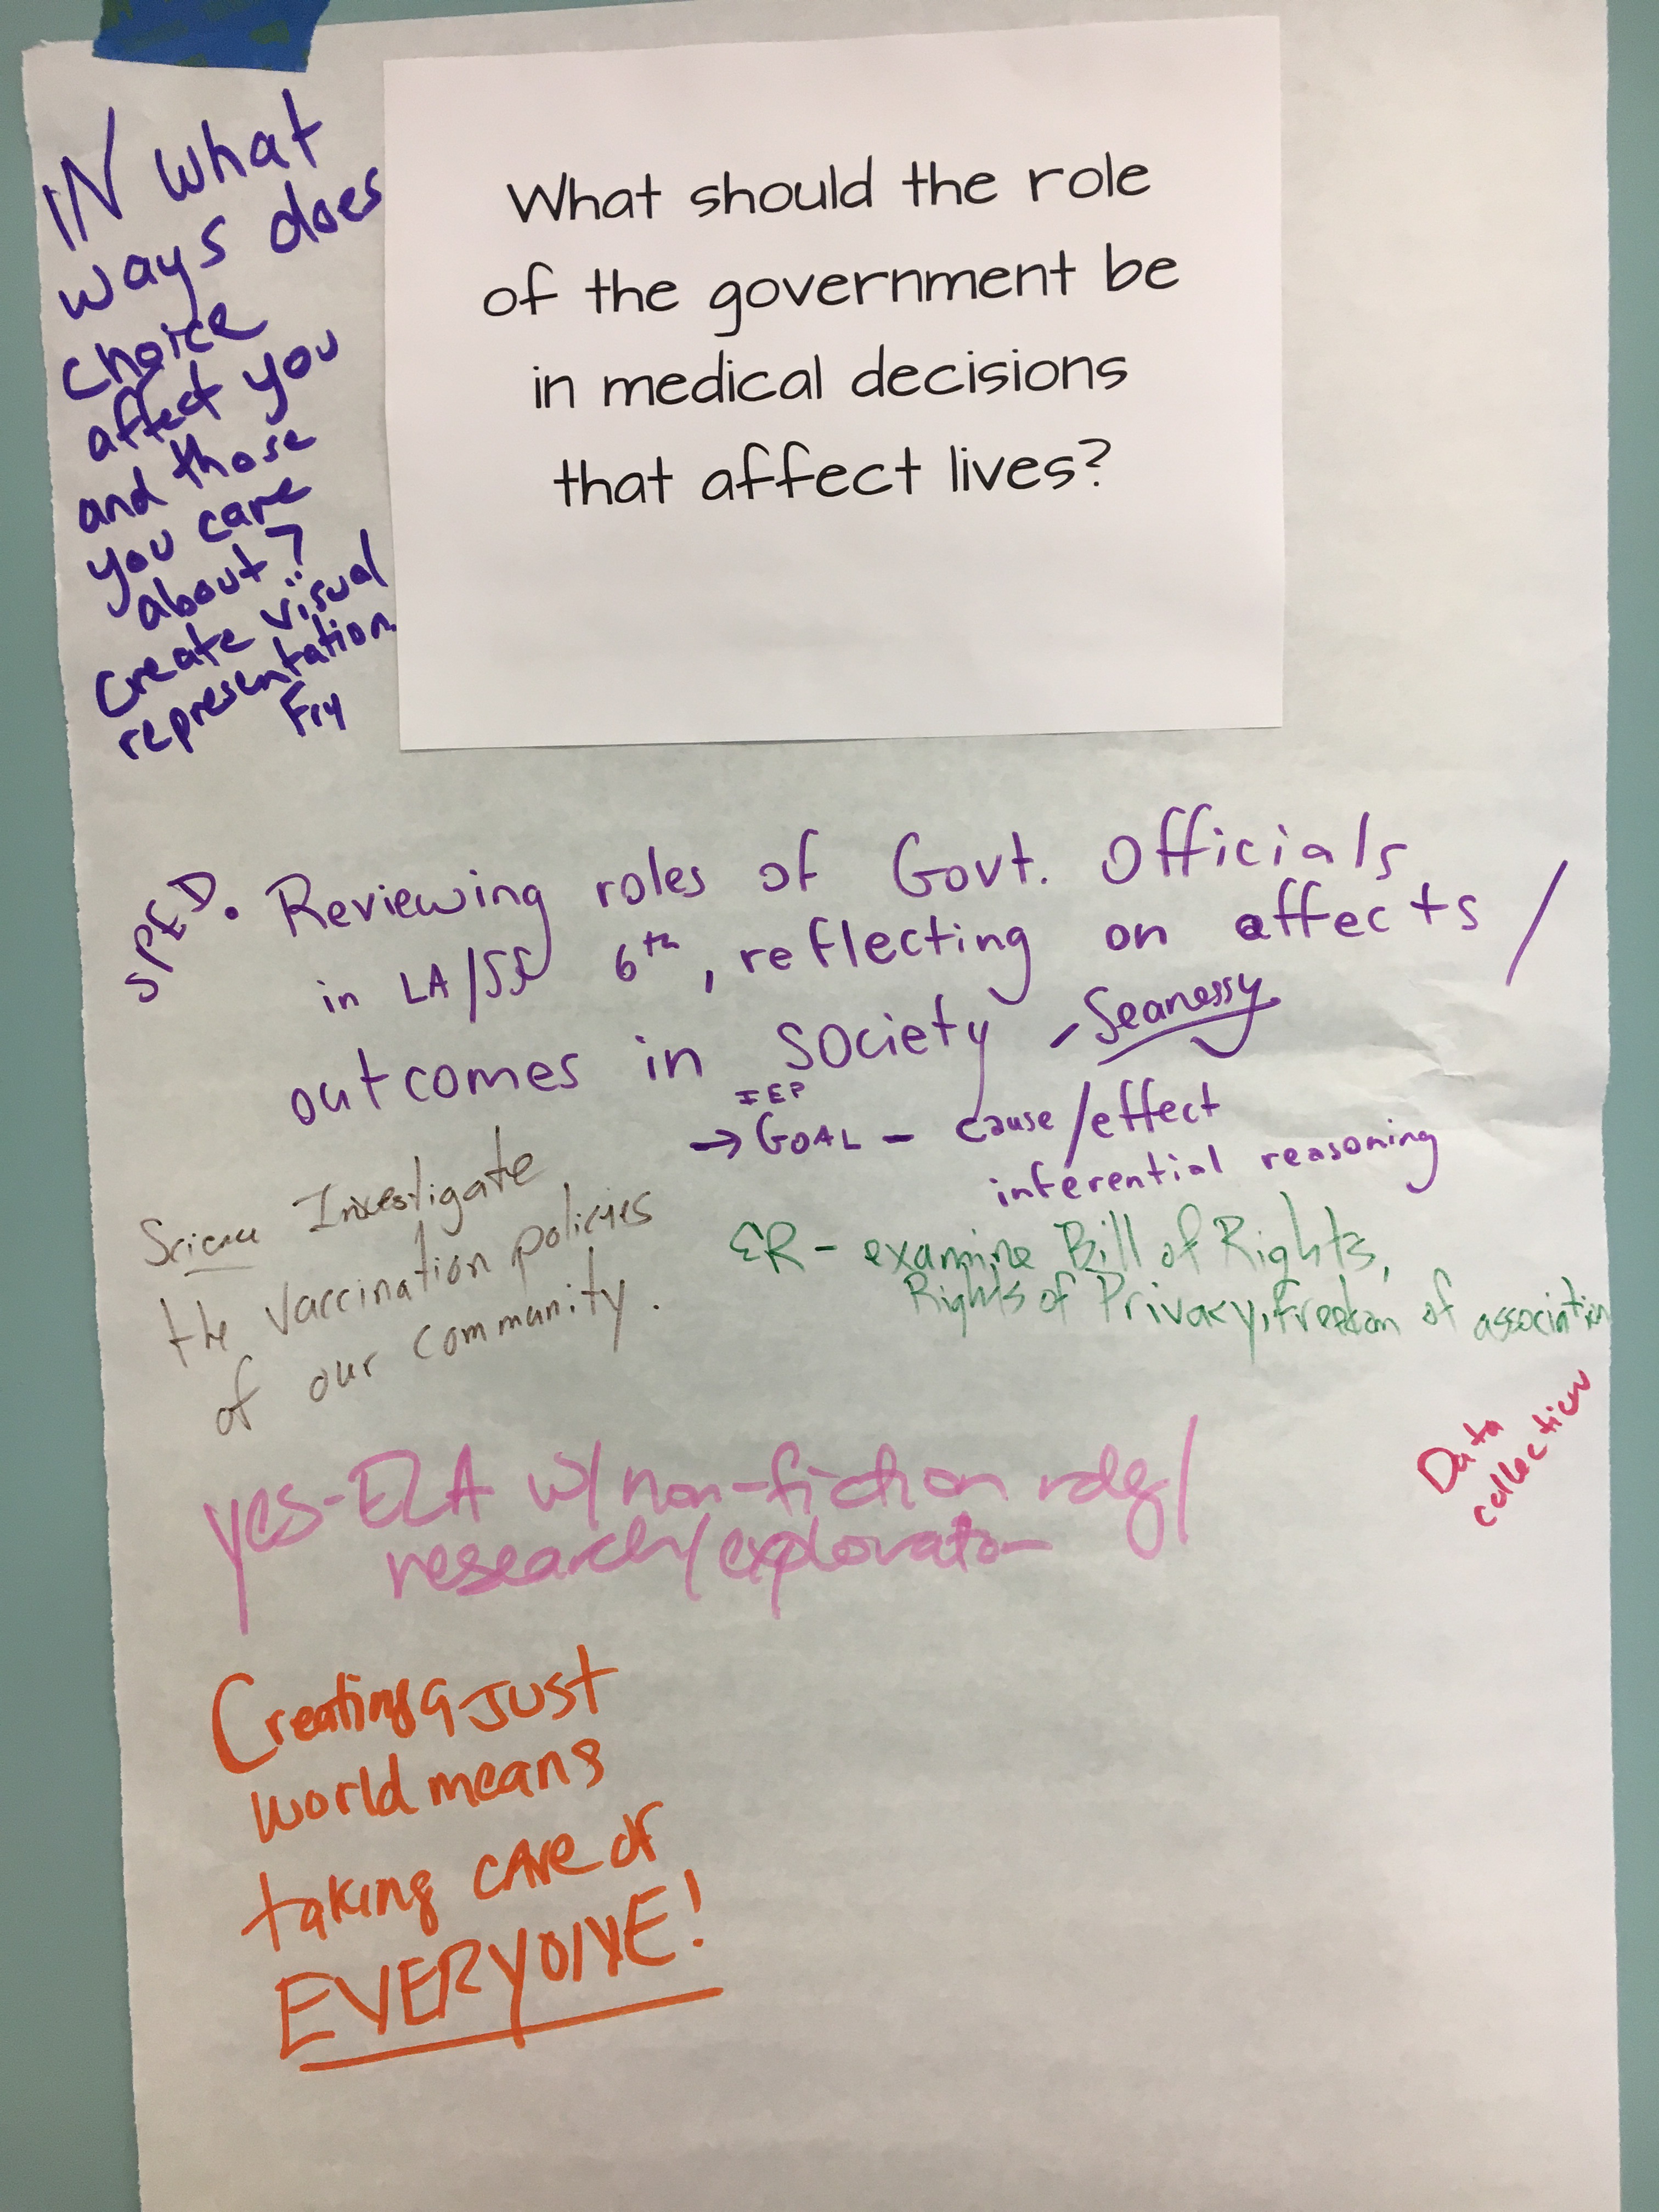 What should the role
of the government be
in medical decisions
that affect lives?
IN what
ways does
choice
affect you
and those
you care
about?
Create visual
representation.
SPED. Reviewing roles of Govt. Officials
in LA/SS 6th, reflecting on affects/
outcomes in society - Seanessy
IEP
→ GOAL - cause/effect
inferential reasoning
Science Investigate
the vaccination policies
of our community.
ER - examine Bill of Rights,
Rights of Privacy, Freedom of association
Data
collection
yes-ELA w/ non-fiction rdg/
research/exploration
Creating a JUST
world means
taking CARE OF
EVERYONE!